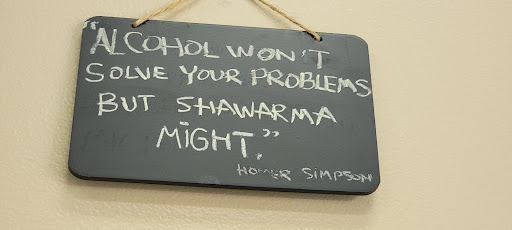 "ALCOHOL WON'T
SOLVE YOUR PROBLEMS
BUT SHAWARMA
MIGHT."
HOMER SIMPSON